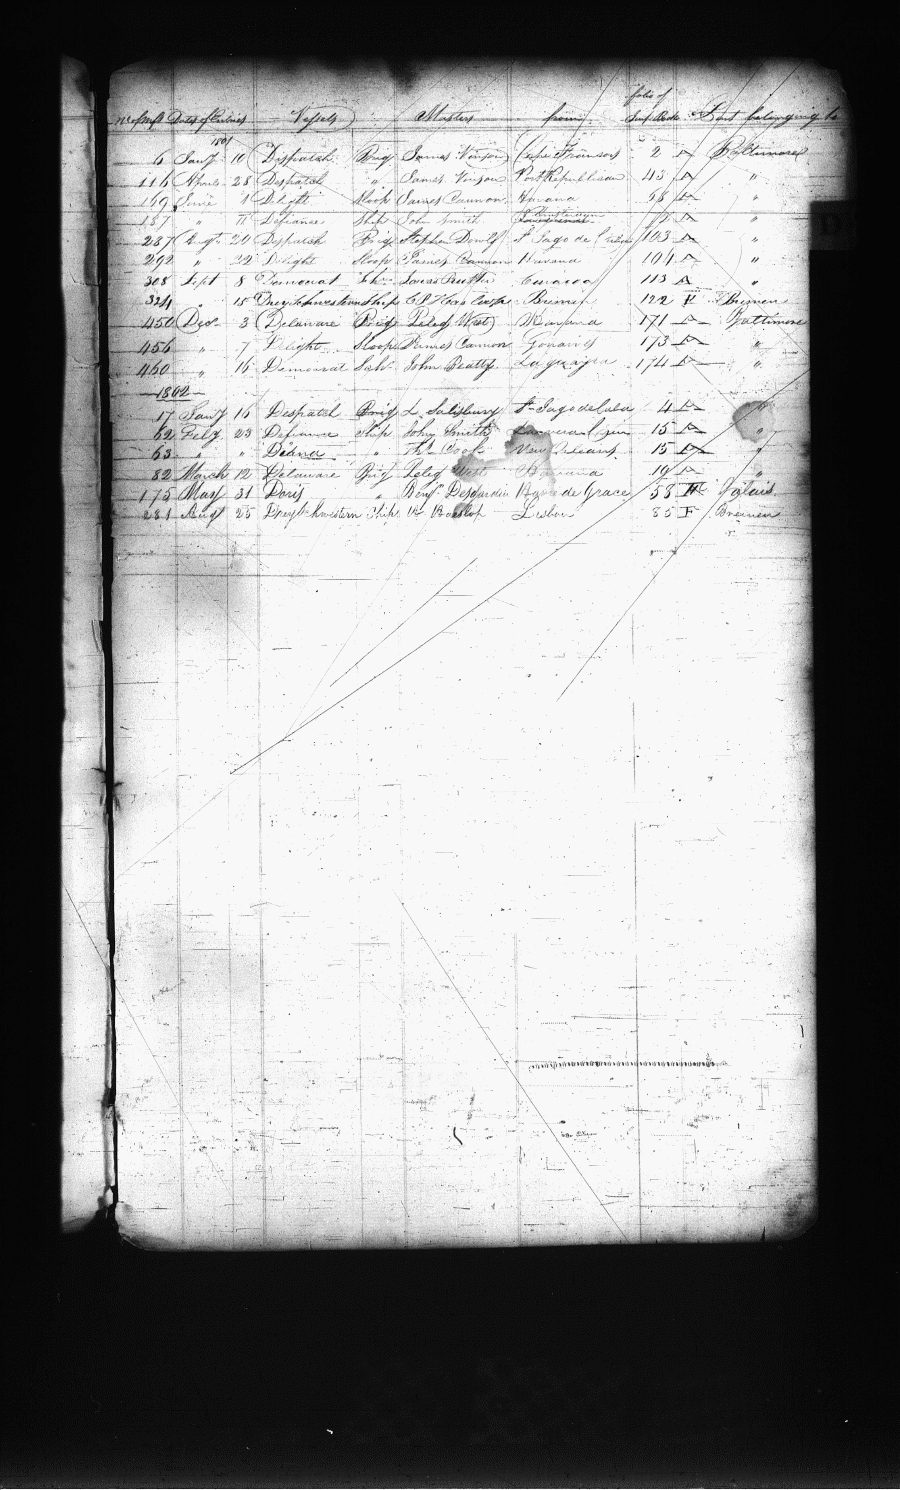 Dates of Entries Vessels Masters from folio of Port belonging to
1801
6 Jany 10 Dispatch Brig James Cape Francois 2 A Baltimore
116 April 28 Despatch " James Port Republican 43 A "
159 June 1 Delight Sloop James Cannon Havana 58 A "
187 " Defiance Ship John Smith Amsterdam A "
287 Augt 20 Dispatch Brig Stephen St Jago de 103 A "
292 " 22 Delight Sloop James Cannon Havana 104 A "
308 Sept 8 Democrat Schr Curacoa 113 A
324 " 15 Ship Bremen 122 F Bremen
450 Dec 3 Delaware Brig Peleg West Havana 171 A Baltimore
456 " 7 Delight Sloop James Cannon Gonaives 173 A "
460 " 16 Democrat Schr John Beatty Laguayra 174 A "
1802
17 Jany 16 Despatch Brig L. Salisbury St Jago de Cuba 4 A "
62 Feby 23 Defiance Ship John Smith 15 A "
63 " " Diana " Ths Cook New Orleans 15 A "
82 March 12 Delaware Brig Peleg West Havana 19 A "
175 May 31 Doris " Benjn Desjardin Havre de Grace 58 Calais
281 Augt 25 Ship Lisbon 85 F Bremen
D